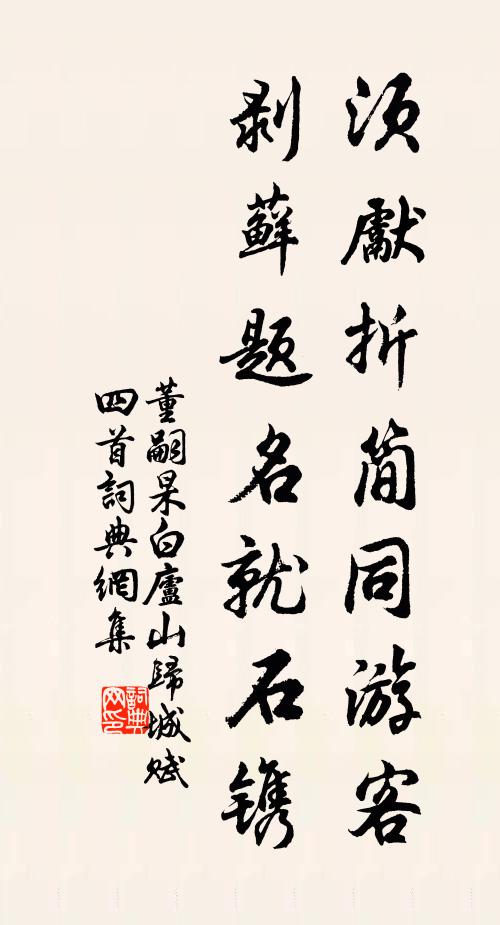 須獻折简同游客
剥蘚题名就石镌
董嗣杲白廬山歸城賦
四首詞典網集
詞典
网印